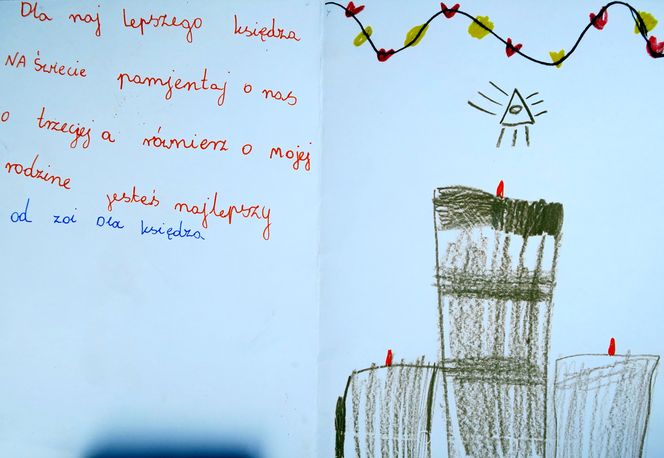 Dla naj lepszego księdza
NA Świecie pamjentaj o nas
o trzecjej a równierz o mojej
rodzine jesteś najlepszy
od zoi Dla księdza